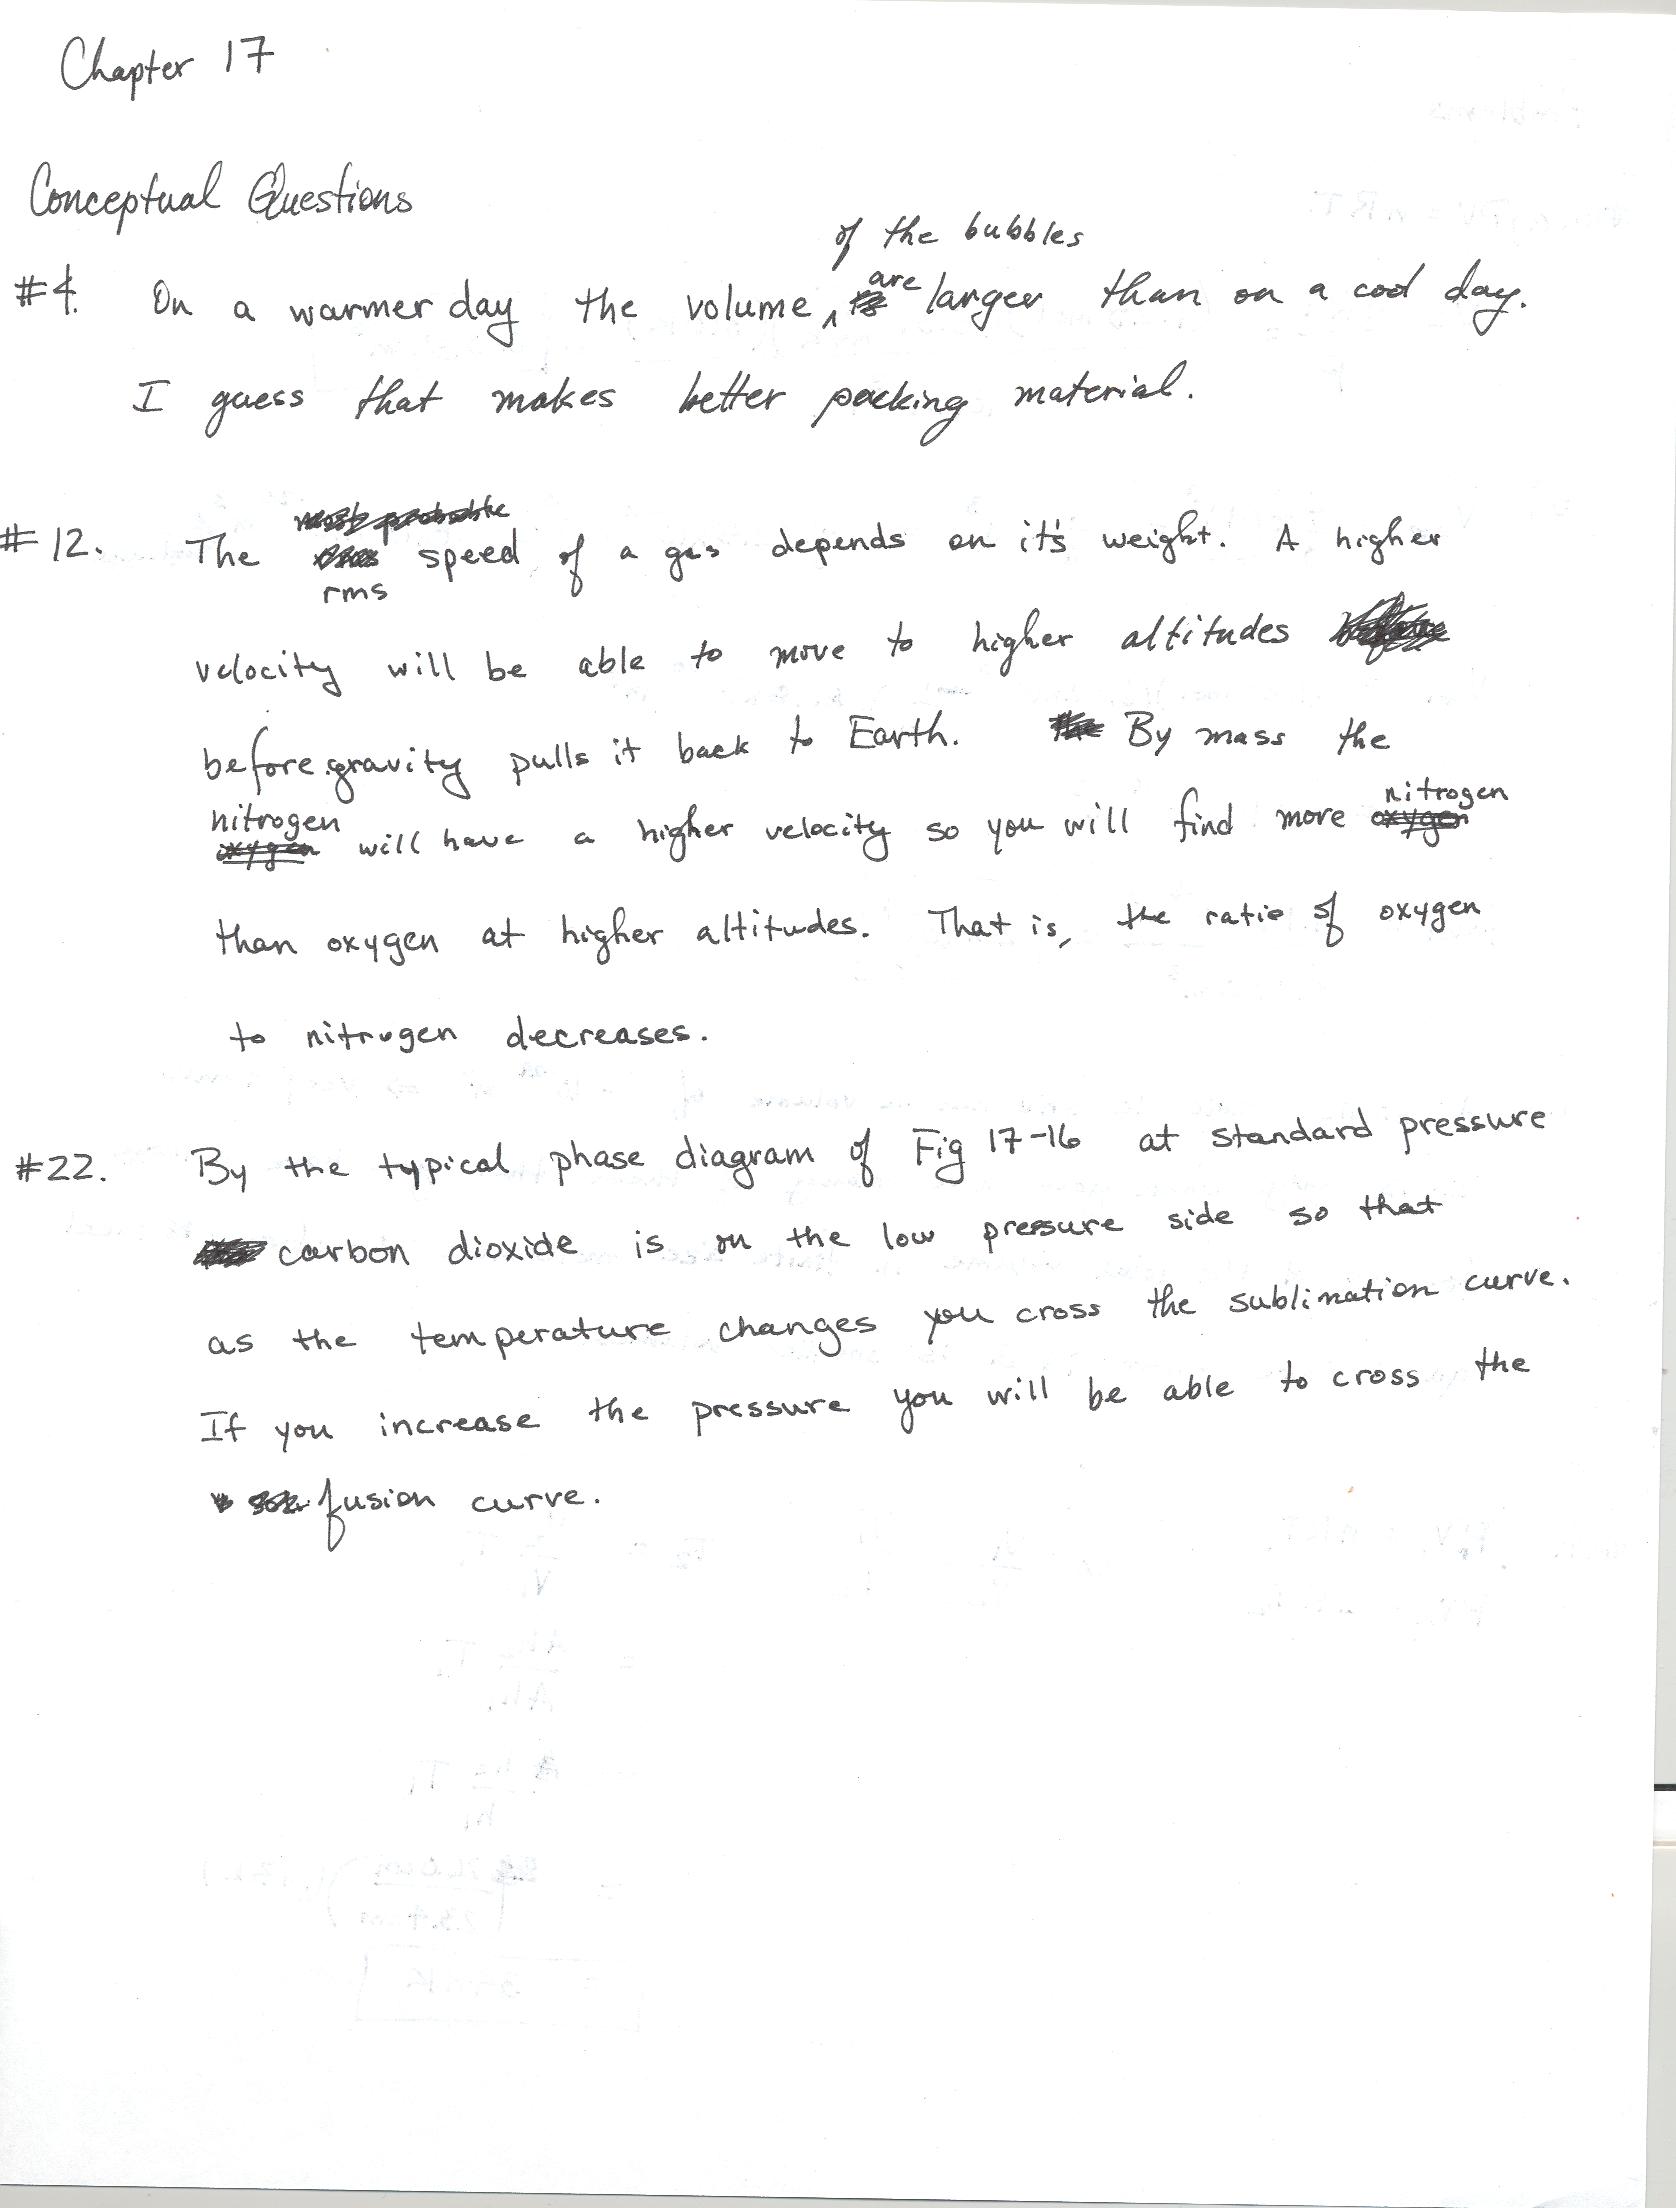 Chapter 17
Conceptual Questions
of the bubbles
#4. On a warmer day the volume are larger than on a cool day.
I guess that makes better packing material.
most probable
#12. The speed of a gas depends on it's weight. A higher
rms
velocity will be able to move to higher altitudes
before gravity pulls it back to Earth. By mass the
nitrogen nitrogen
oxygen will have a higher velocity so you will find more oxygen
than oxygen at higher altitudes. That is, the ratio of oxygen
to nitrogen decreases.
#22. By the typical phase diagram of Fig 17-16 at standard pressure
carbon dioxide is on the low pressure side so that
as the temperature changes you cross the sublimation curve.
If you increase the pressure you will be able to cross the
fusion curve.